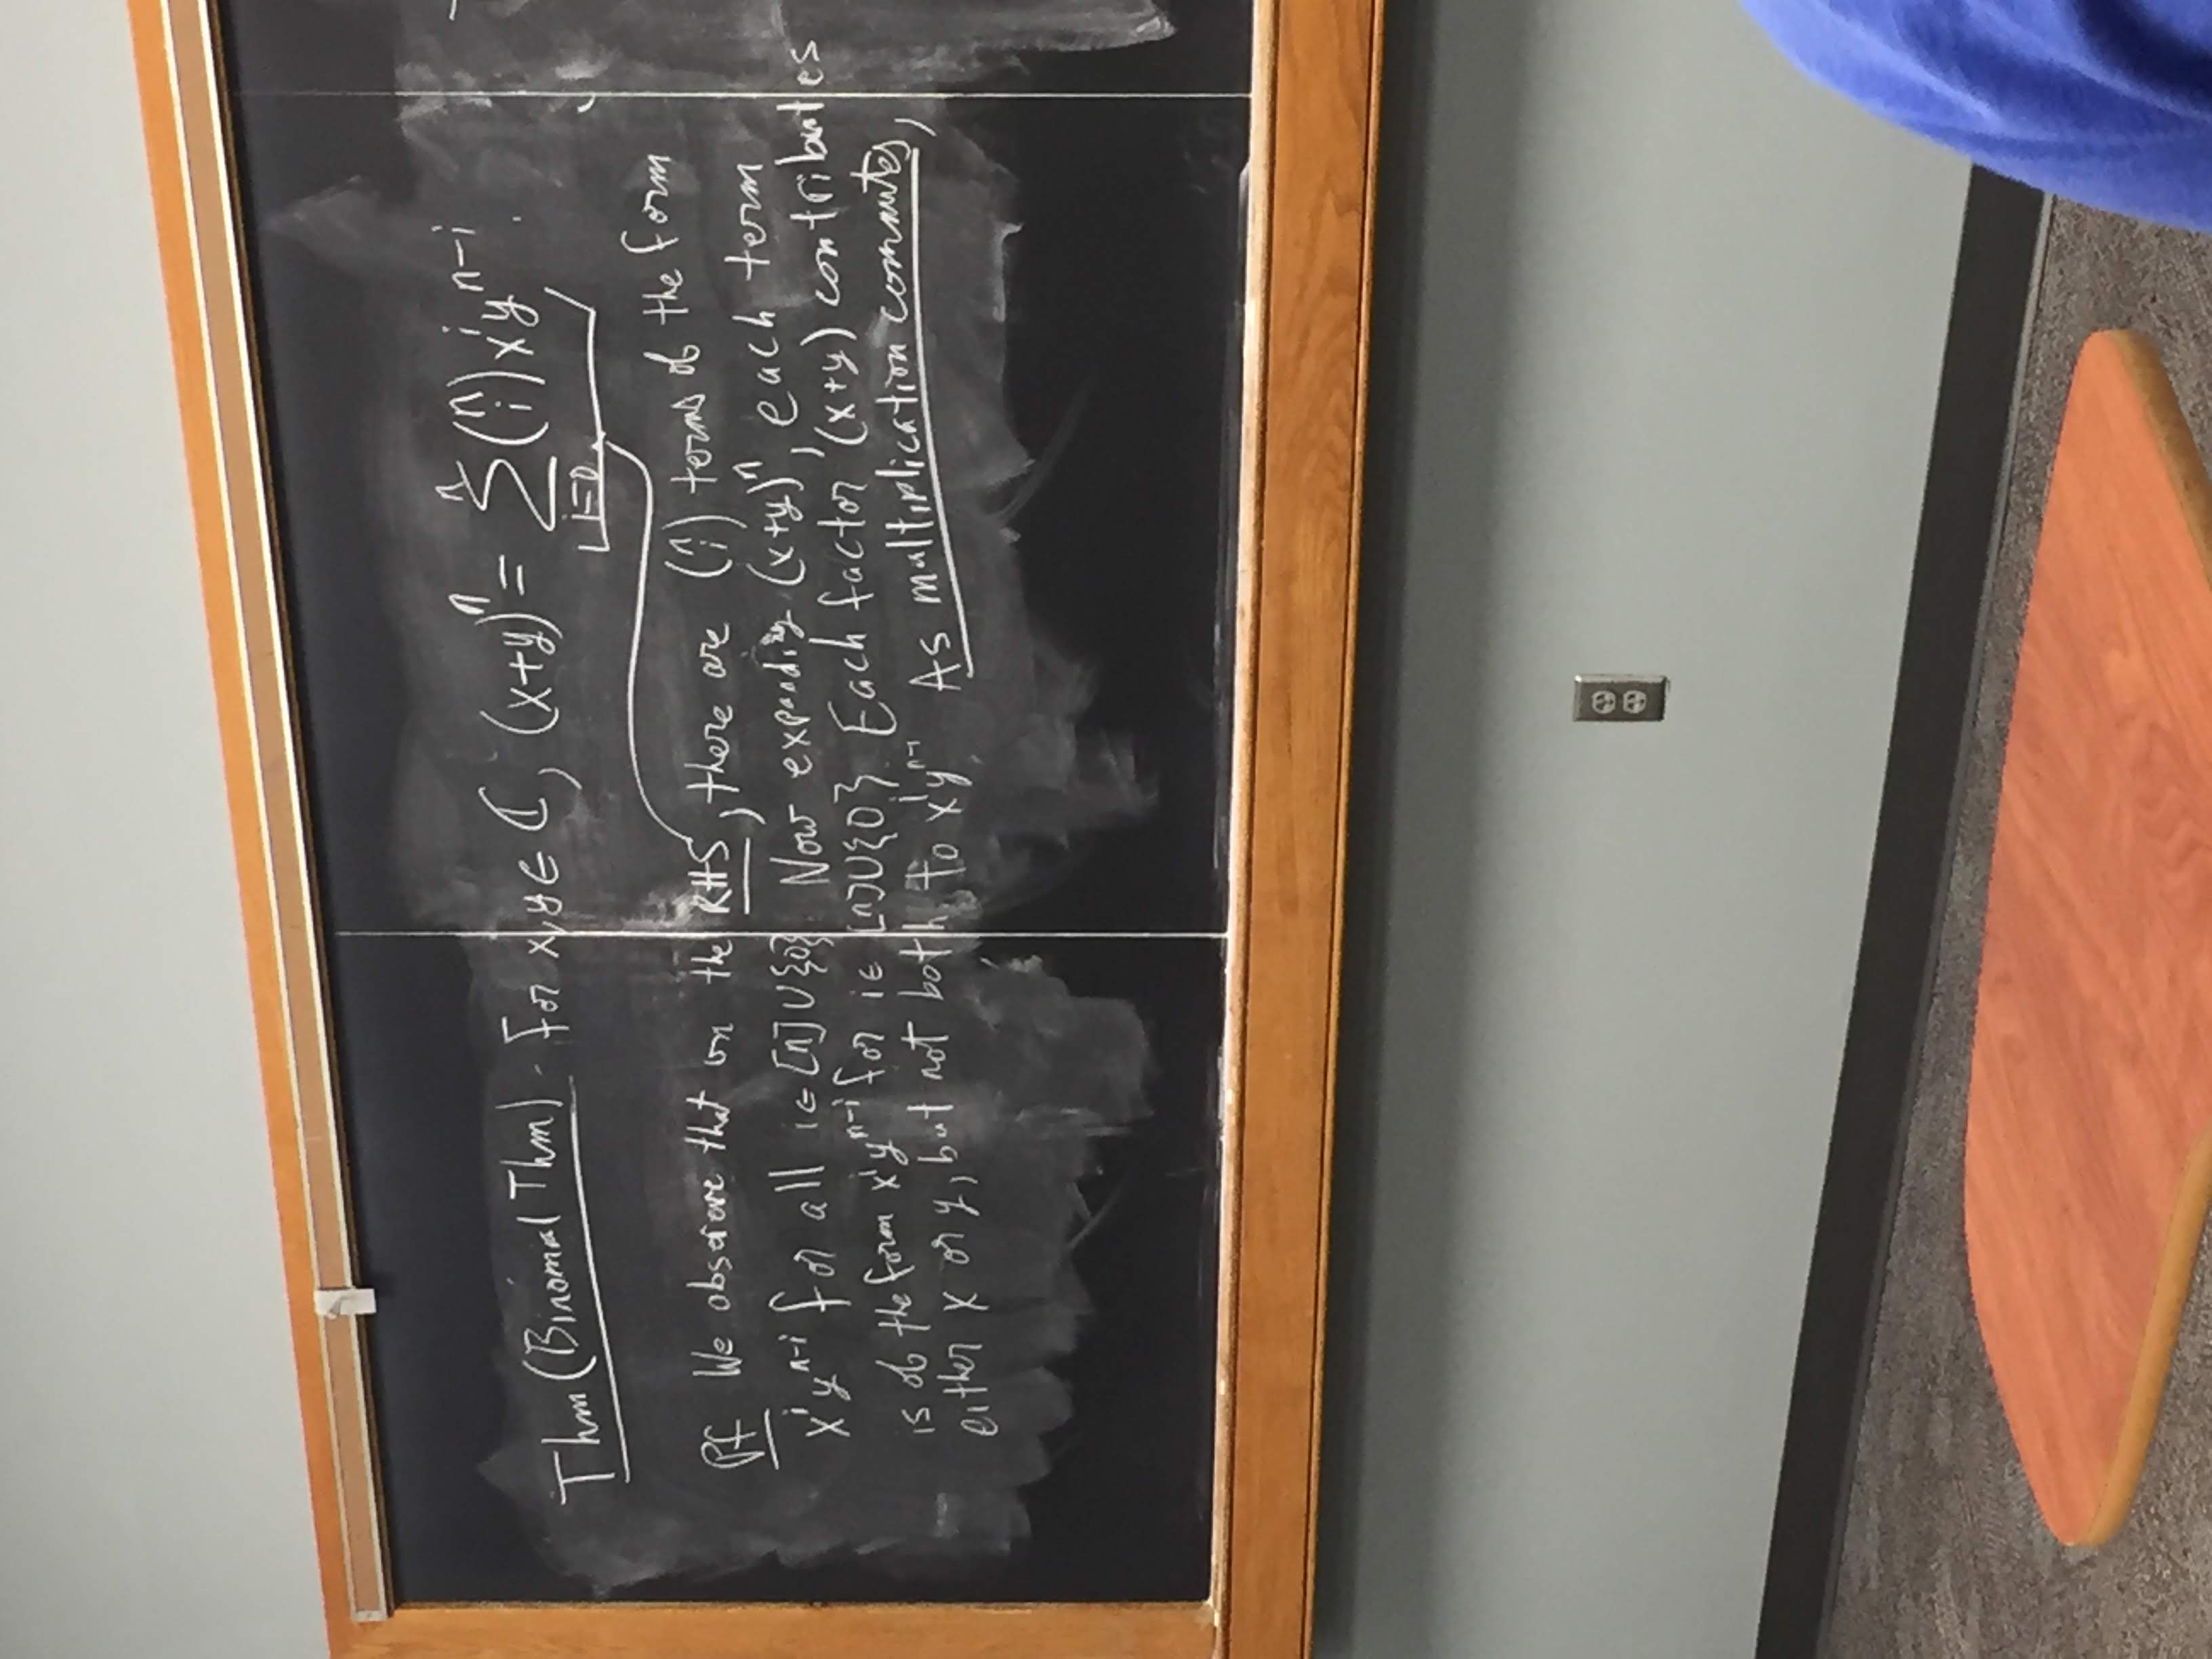 Thm (Binomial Thm). For x,y ∈ ℂ, (x+y)^n = ∑_{i=0}^{n} (n choose i) x^i y^{n-i}.
Pf We observe that on the RHS, there are (n choose i) terms of the form
x^i y^{n-i} for all i ∈ [n] ∪ {0}. Now expanding (x+y)^n, each term
is of the form x^i y^{n-i} for i ∈ [n] ∪ {0}. Each factor (x+y) contributes
either x or y, but not both, to x^i y^{n-i}. As multiplication commutes,